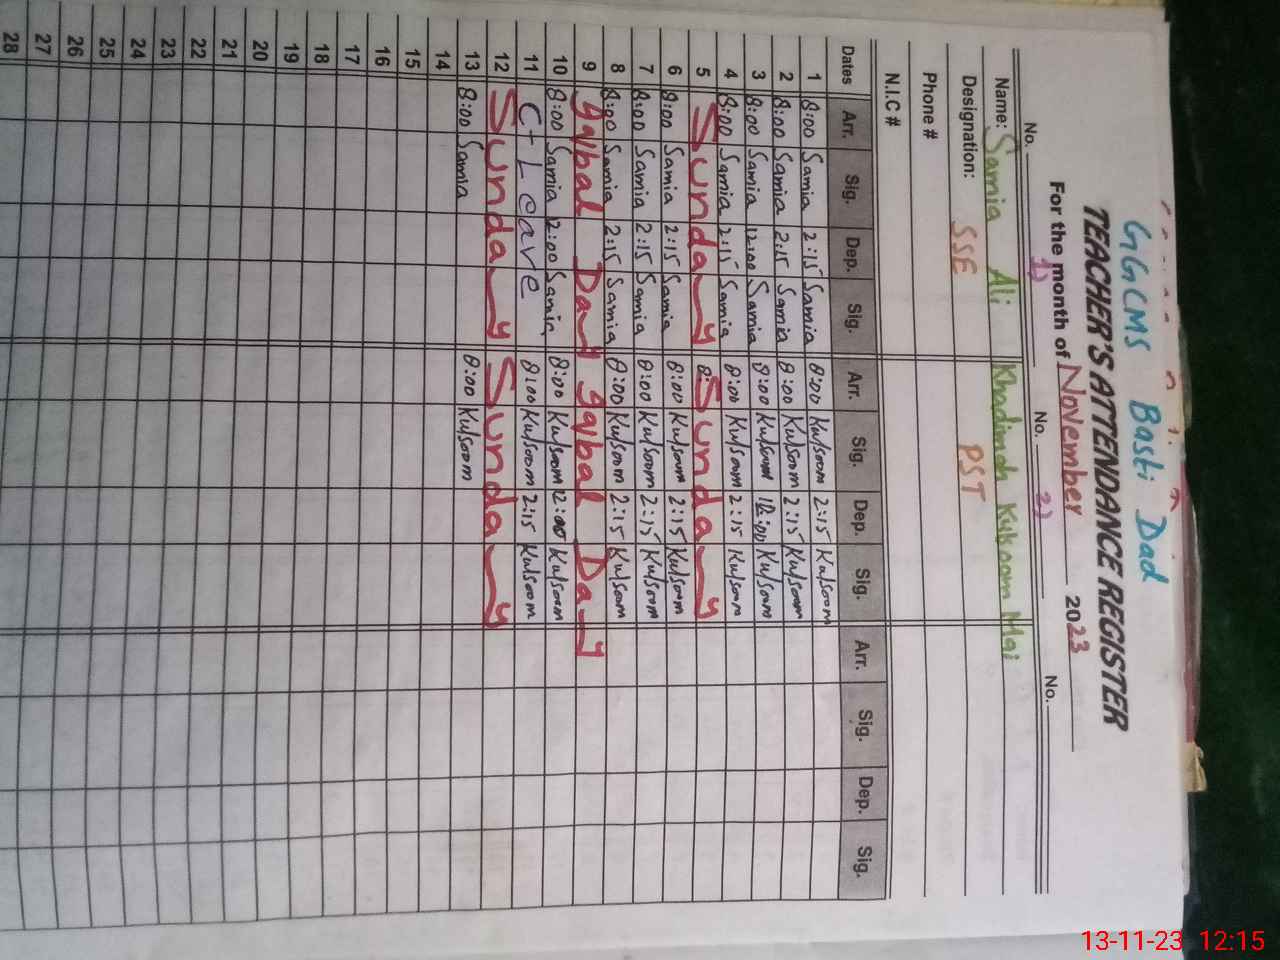 GGCMS Basti Dad
TEACHER'S ATTENDANCE REGISTER
For the month of November 2023
No. 1) No. 2) No.
Name: Samia Ali Khadimah Kulsoom Mai
Designation: SSE PST
Phone #
N.I.C #
Dates Arr. Sig. Dep. Sig. Arr. Sig. Dep. Sig. Arr. Sig. Dep. Sig.
1 8:00 Samia 2:15 Samia 8:00 Kulsoom 2:15 Kulsoom
2 8:00 Samia 2:15 Samia 8:00 Kulsoom 2:15 Kulsoom
3 8:00 Samia 12:00 Samia 8:00 Kulsoom 12:00 Kulsoom
4 8:00 Samia 2:15 Samia 8:00 Kulsoom 2:15 Kulsoom
5 Sunday 8: Sunday
6 8:00 Samia 2:15 Samia 8:00 Kulsoom 2:15 Kulsoom
7 8:00 Samia 2:15 Samia 8:00 Kulsoom 2:15 Kulsoom
8 8:00 Samia 2:15 Samia 8:00 Kulsoom 2:15 Kulsoom
9 Iqbal Day Iqbal Day
10 8:00 Samia 12:00 Samia 8:00 Kulsoom 12:00 Kulsoom
11 C-Leave 8:00 Kulsoom 2:15 Kulsoom
12 Sunday Sunday
13 8:00 Samia 8:00 Kulsoom
14
15
16
17
18
19
20
21
22
23
24
25
26
27
28
13-11-23 12:15